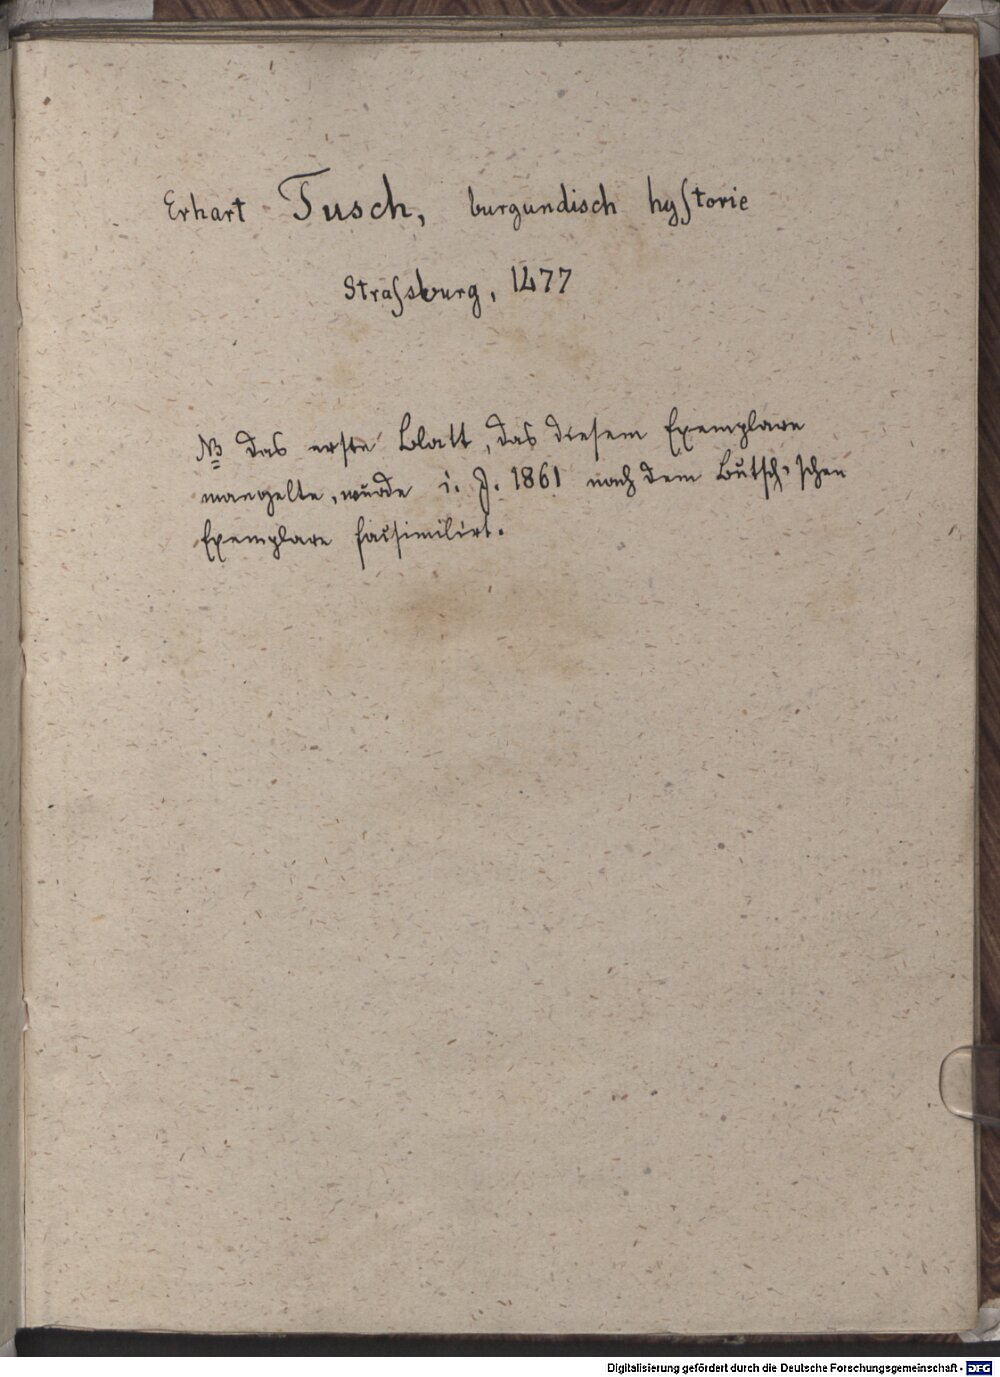 Erhart Tusch, burgundisch hyſtorie
Straſsburg, 1477
NB das erste Blatt, das diesem Exemplare
mangelte, wurde i. J. 1861 nach dem Butsch'schen
Exemplare facsimilirt.
Digitalisierung gefördert durch die Deutsche Forschungsgemeinschaft - DFG